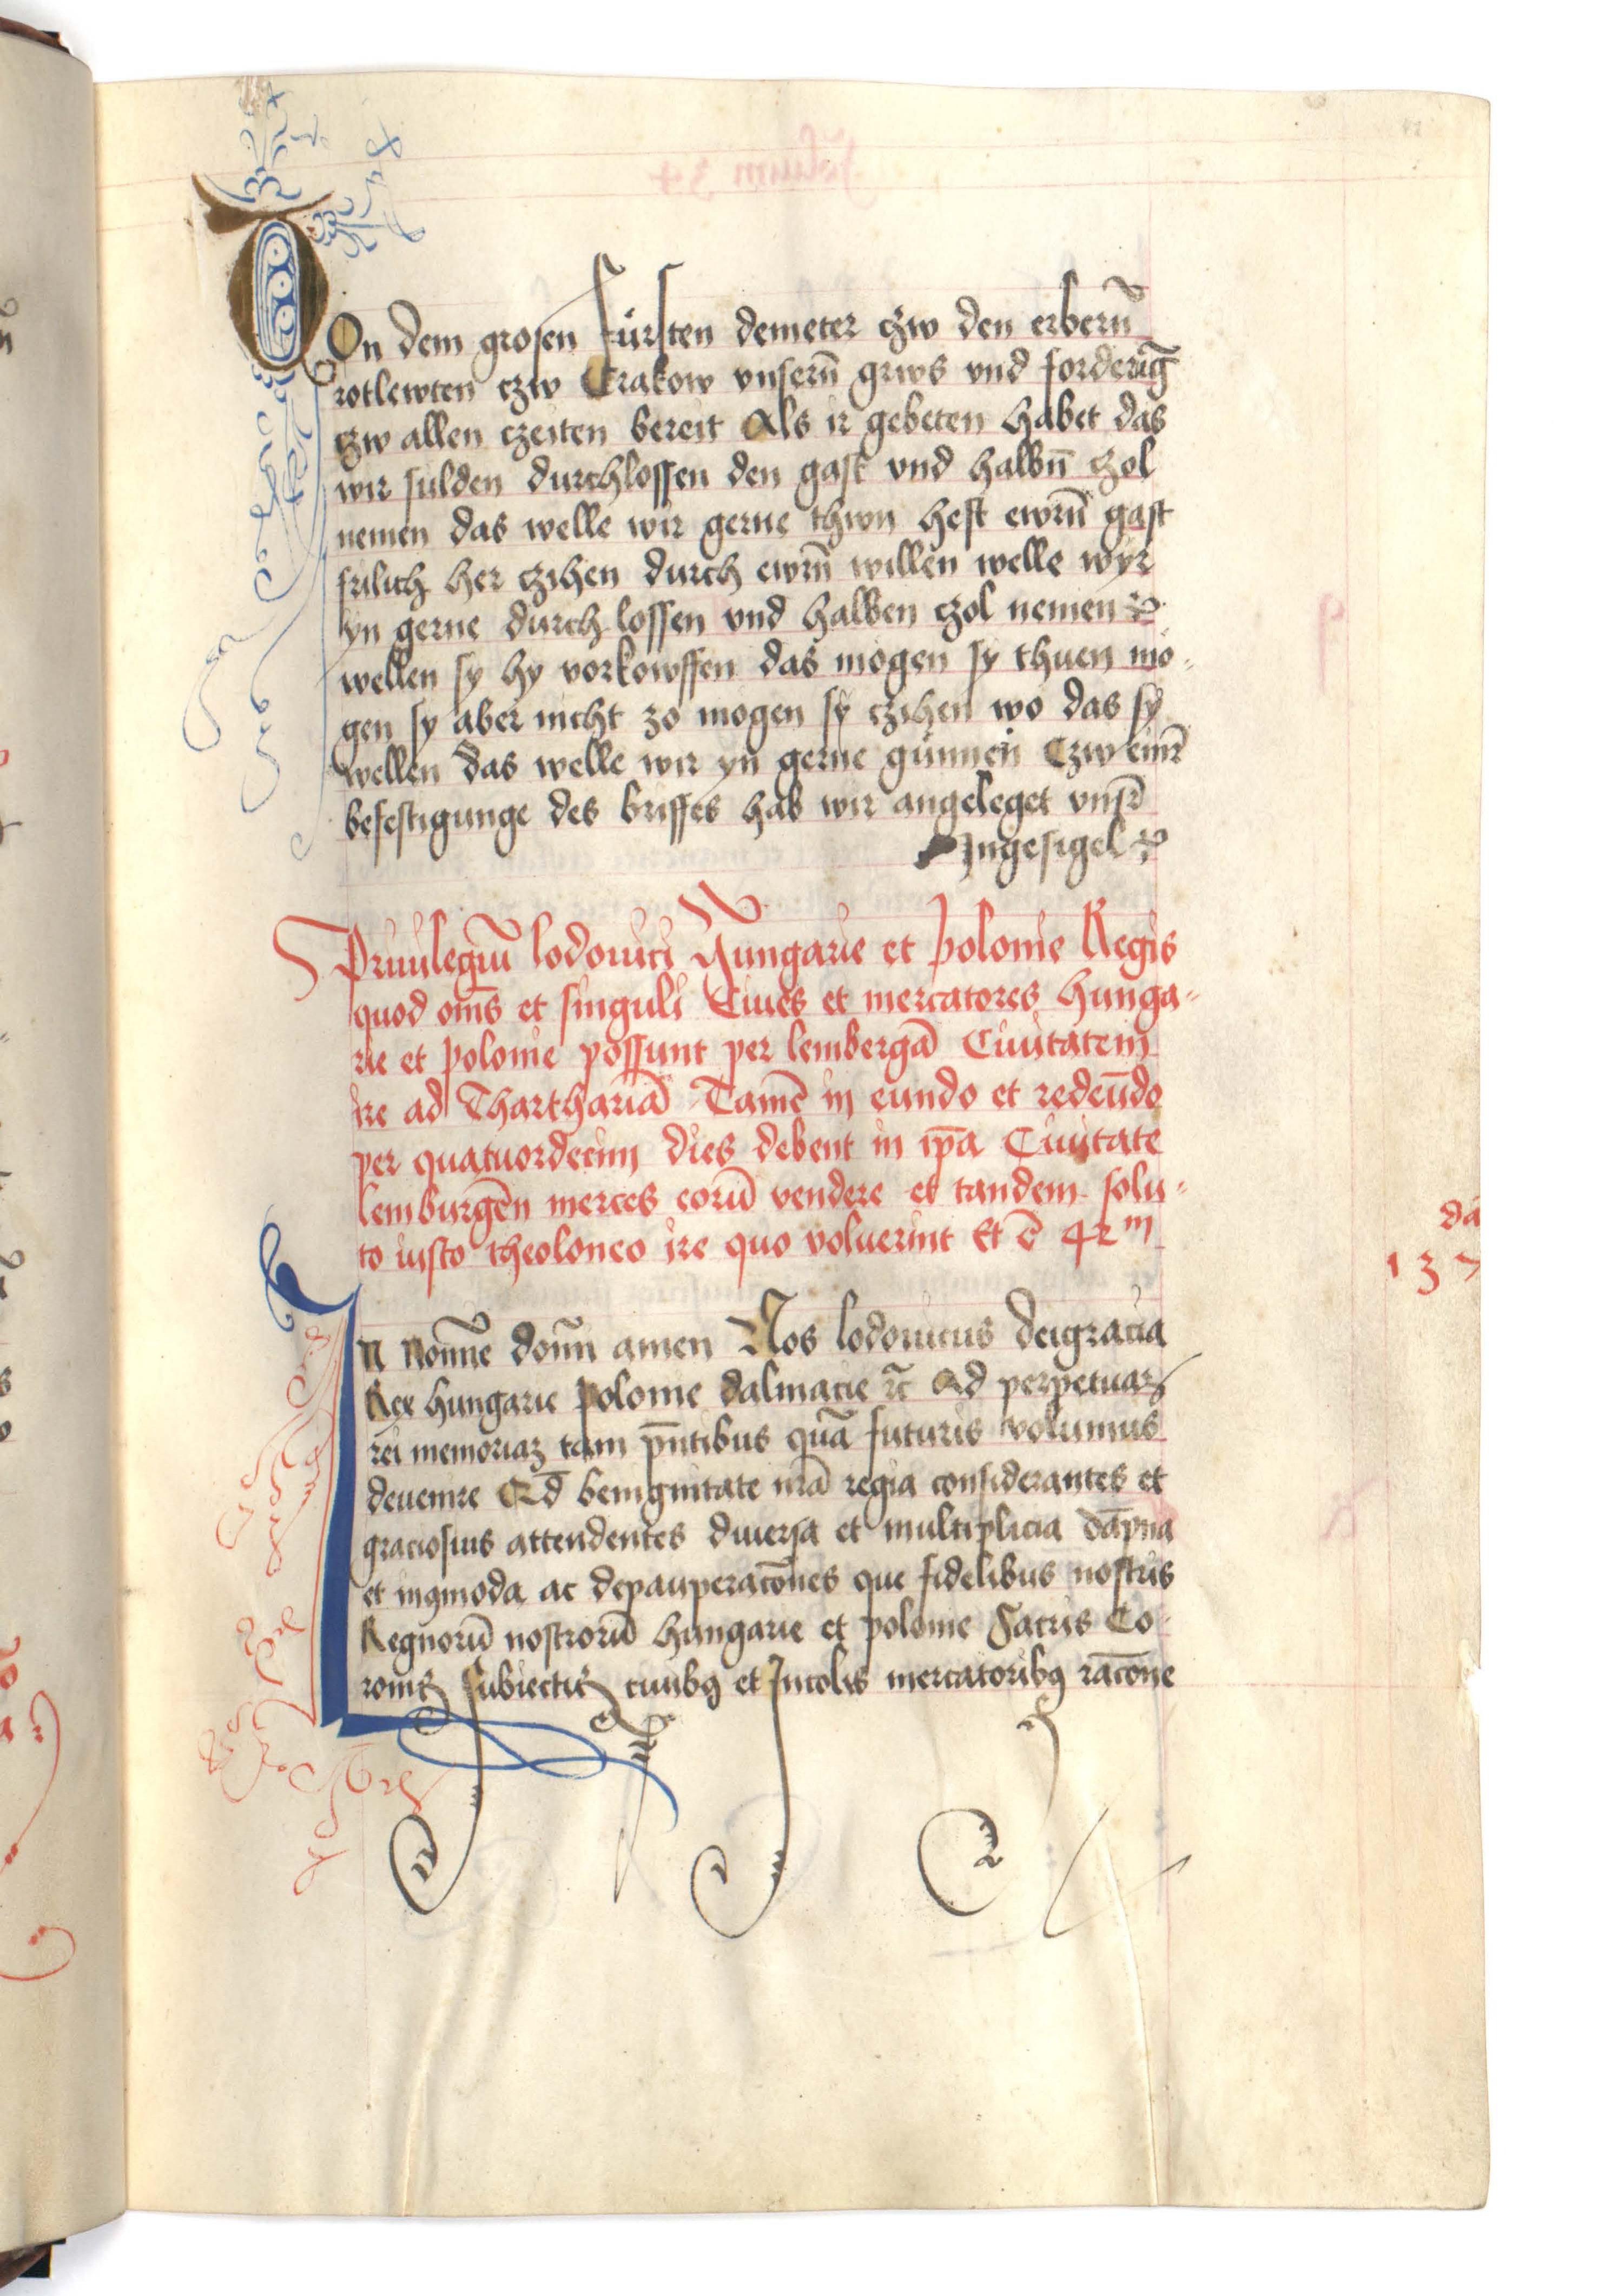 VOn dem grosen fursten demeter czw den erbern̄
rotlewten czw Crakow vnsern̄ grws vnd forderūg
czw allen czeiten bereit Als ir gebeten habet das
wir sulden durchlossen den gast vnd halbn̄ czol
nemen das welle wir gerne thwn hest ewrn̄ gast
frilich her czihen durch ewrn̄ willen welle wyr
yn gerne durch lossen vnd halben czol nemen
wellen sy hy vorkowffen das mogen sy thuen mo-
gen sy aber nicht zo mogen sy czihen wo das sy
wellen das welle wir yn gerne gunnen Czw einr̄
befestigunge des briffes hab wir angeleget vnsr̄
Ingesigel
Priuilegiū lodouici Hungarie et polonie Regis
quod om̄s et singuli Ciues et mercatores hunga-
rie et polonie possunt per lembergā Ciuitatem
ire ad Tharthariā Tamē in eundo et redeūdo
per quatuordecim dies debent in ip̄a Ciuitate
lemburgēn merces eorū vendere et tandem solu-
to iusto theoloneo ire quo voluerint Et ē 42ᵐ
dā
137
In Nomīne domī amen Nos lodouicus deigracia
Rex hungarie polonie dalmacie ꝛc̄ Ad perpetuaꝫ
rei memoriaꝫ tam pn̄tibus quā futuris volumus
deuenire Qd̄ benignitate nr̄a regia considerantes et
graciosius attendentes diuersa et multiplicia dāpna
et inꝯmoda ac depauperacōnes que fidelibus nostris
Regnorū nostrorū hungarie et polonie Sacris Co-
ronis subiectis ciuibꝫ et Incolis mercatoribꝫ racōne